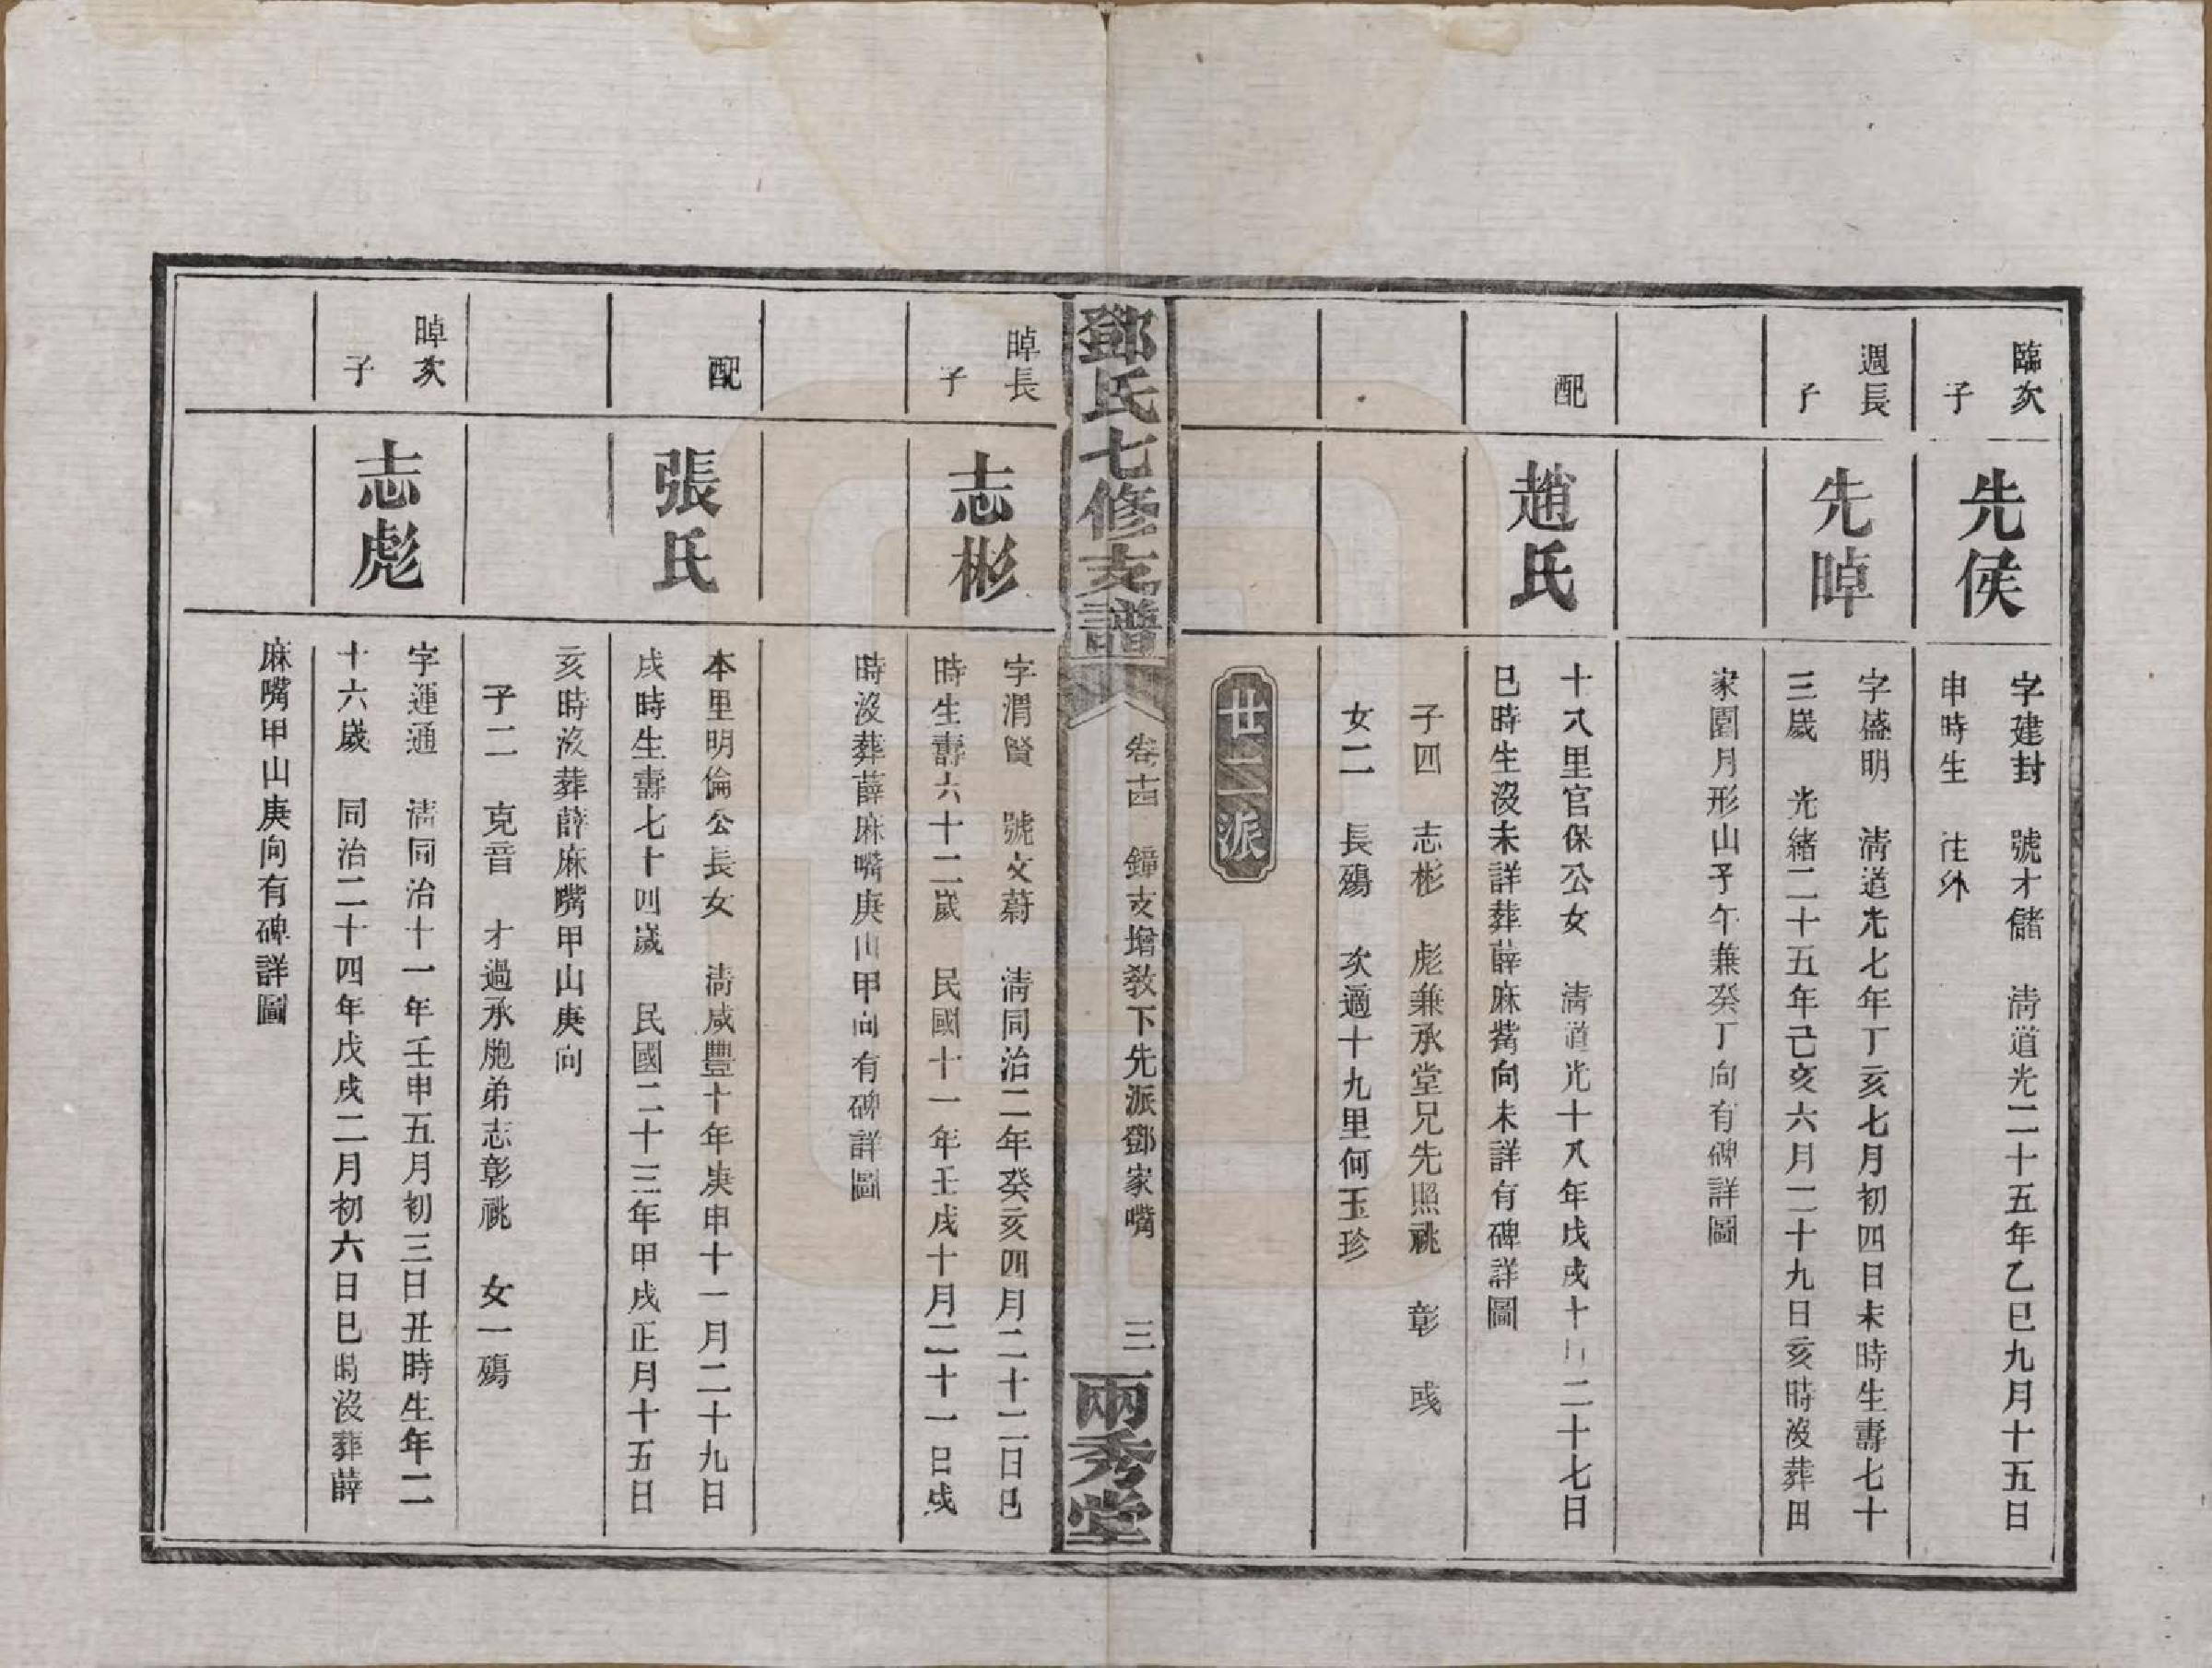 臨次
子
先侯
字建封　號才儲　淸道光二十五年乙巳九月十五日
申時生　往外
週長
子
先晫
字盛明　淸道光七年丁亥七月初四日未時生壽七十
三歲　光緒二十五年己亥六月二十九日亥時沒葬田
家園月形山子午兼癸丁向有碑詳圖
配
趙氏
十八里官保公女　淸道光十八年戊戌十月二十七日
巳時生沒未詳葬薛麻嘴向未詳有碑詳圖
子四　志彬　彪兼承堂兄先照祧　彰　彧
女二　長殤　次適十九里何玉珍
廿二派
鄧氏七修支譜　卷十四　鐘支增敎下先派鄧家嘴　三　兩秀堂
晫長
子
志彬
字渭賢　號文蔚　淸同治二年癸亥四月二十二日巳
時生壽六十二歲　民國十一年壬戌十月二十一日戌
時沒葬薛麻嘴庚山甲向有碑詳圖
配
張氏
本里明倫公長女　淸咸豐十年庚申十一月二十九日
戌時生壽七十四歲　民國二十三年甲戌正月十五日
亥時沒葬薛麻嘴甲山庚向
子二　克音　才過承胞弟志彰祧　女一殤
晫次
子
志彪
字運通　淸同治十一年壬申五月初三日丑時生年二
十六歲　同治二十四年戊戌二月初六日巳時沒葬薛
麻嘴甲山庚向有碑詳圖